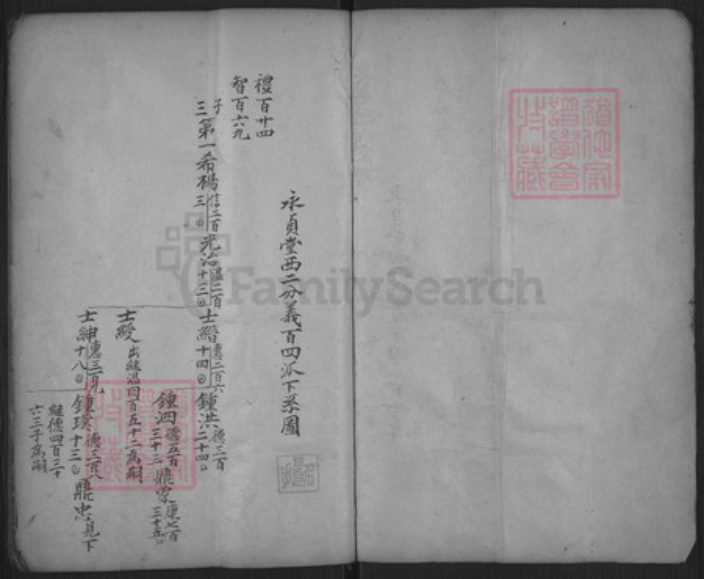 永貞堂西二分義百四派下系圖
禮百廿四
智百六九
子
三第一希楊信二百三
光治溫二百十三
士縉惠二百六十四
鍾洪德三百二十四
鍾泗德五百三十三
鼎
康七百三十五
士綬出繼溫四百五十二為嗣
士紳惠三百九十八
鍾瑛德三百八十三
鼎忠見下
繼德四百三十
六三子為嗣
FamilySearch